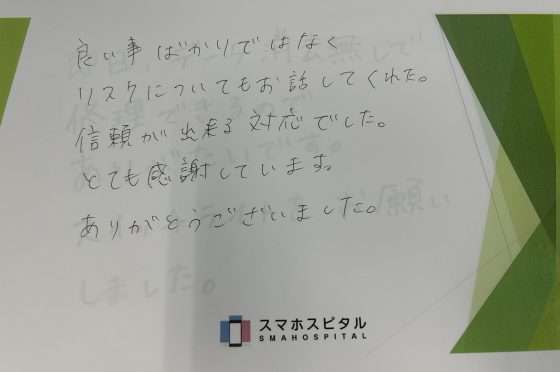 良い事ばかりではなく
リスクについてもお話してくれた。
信頼が出来る対応でした。
とても感謝しています。
ありがとうございました。
お願い
しました。
スマホスピタル
SMAHOSPITAL